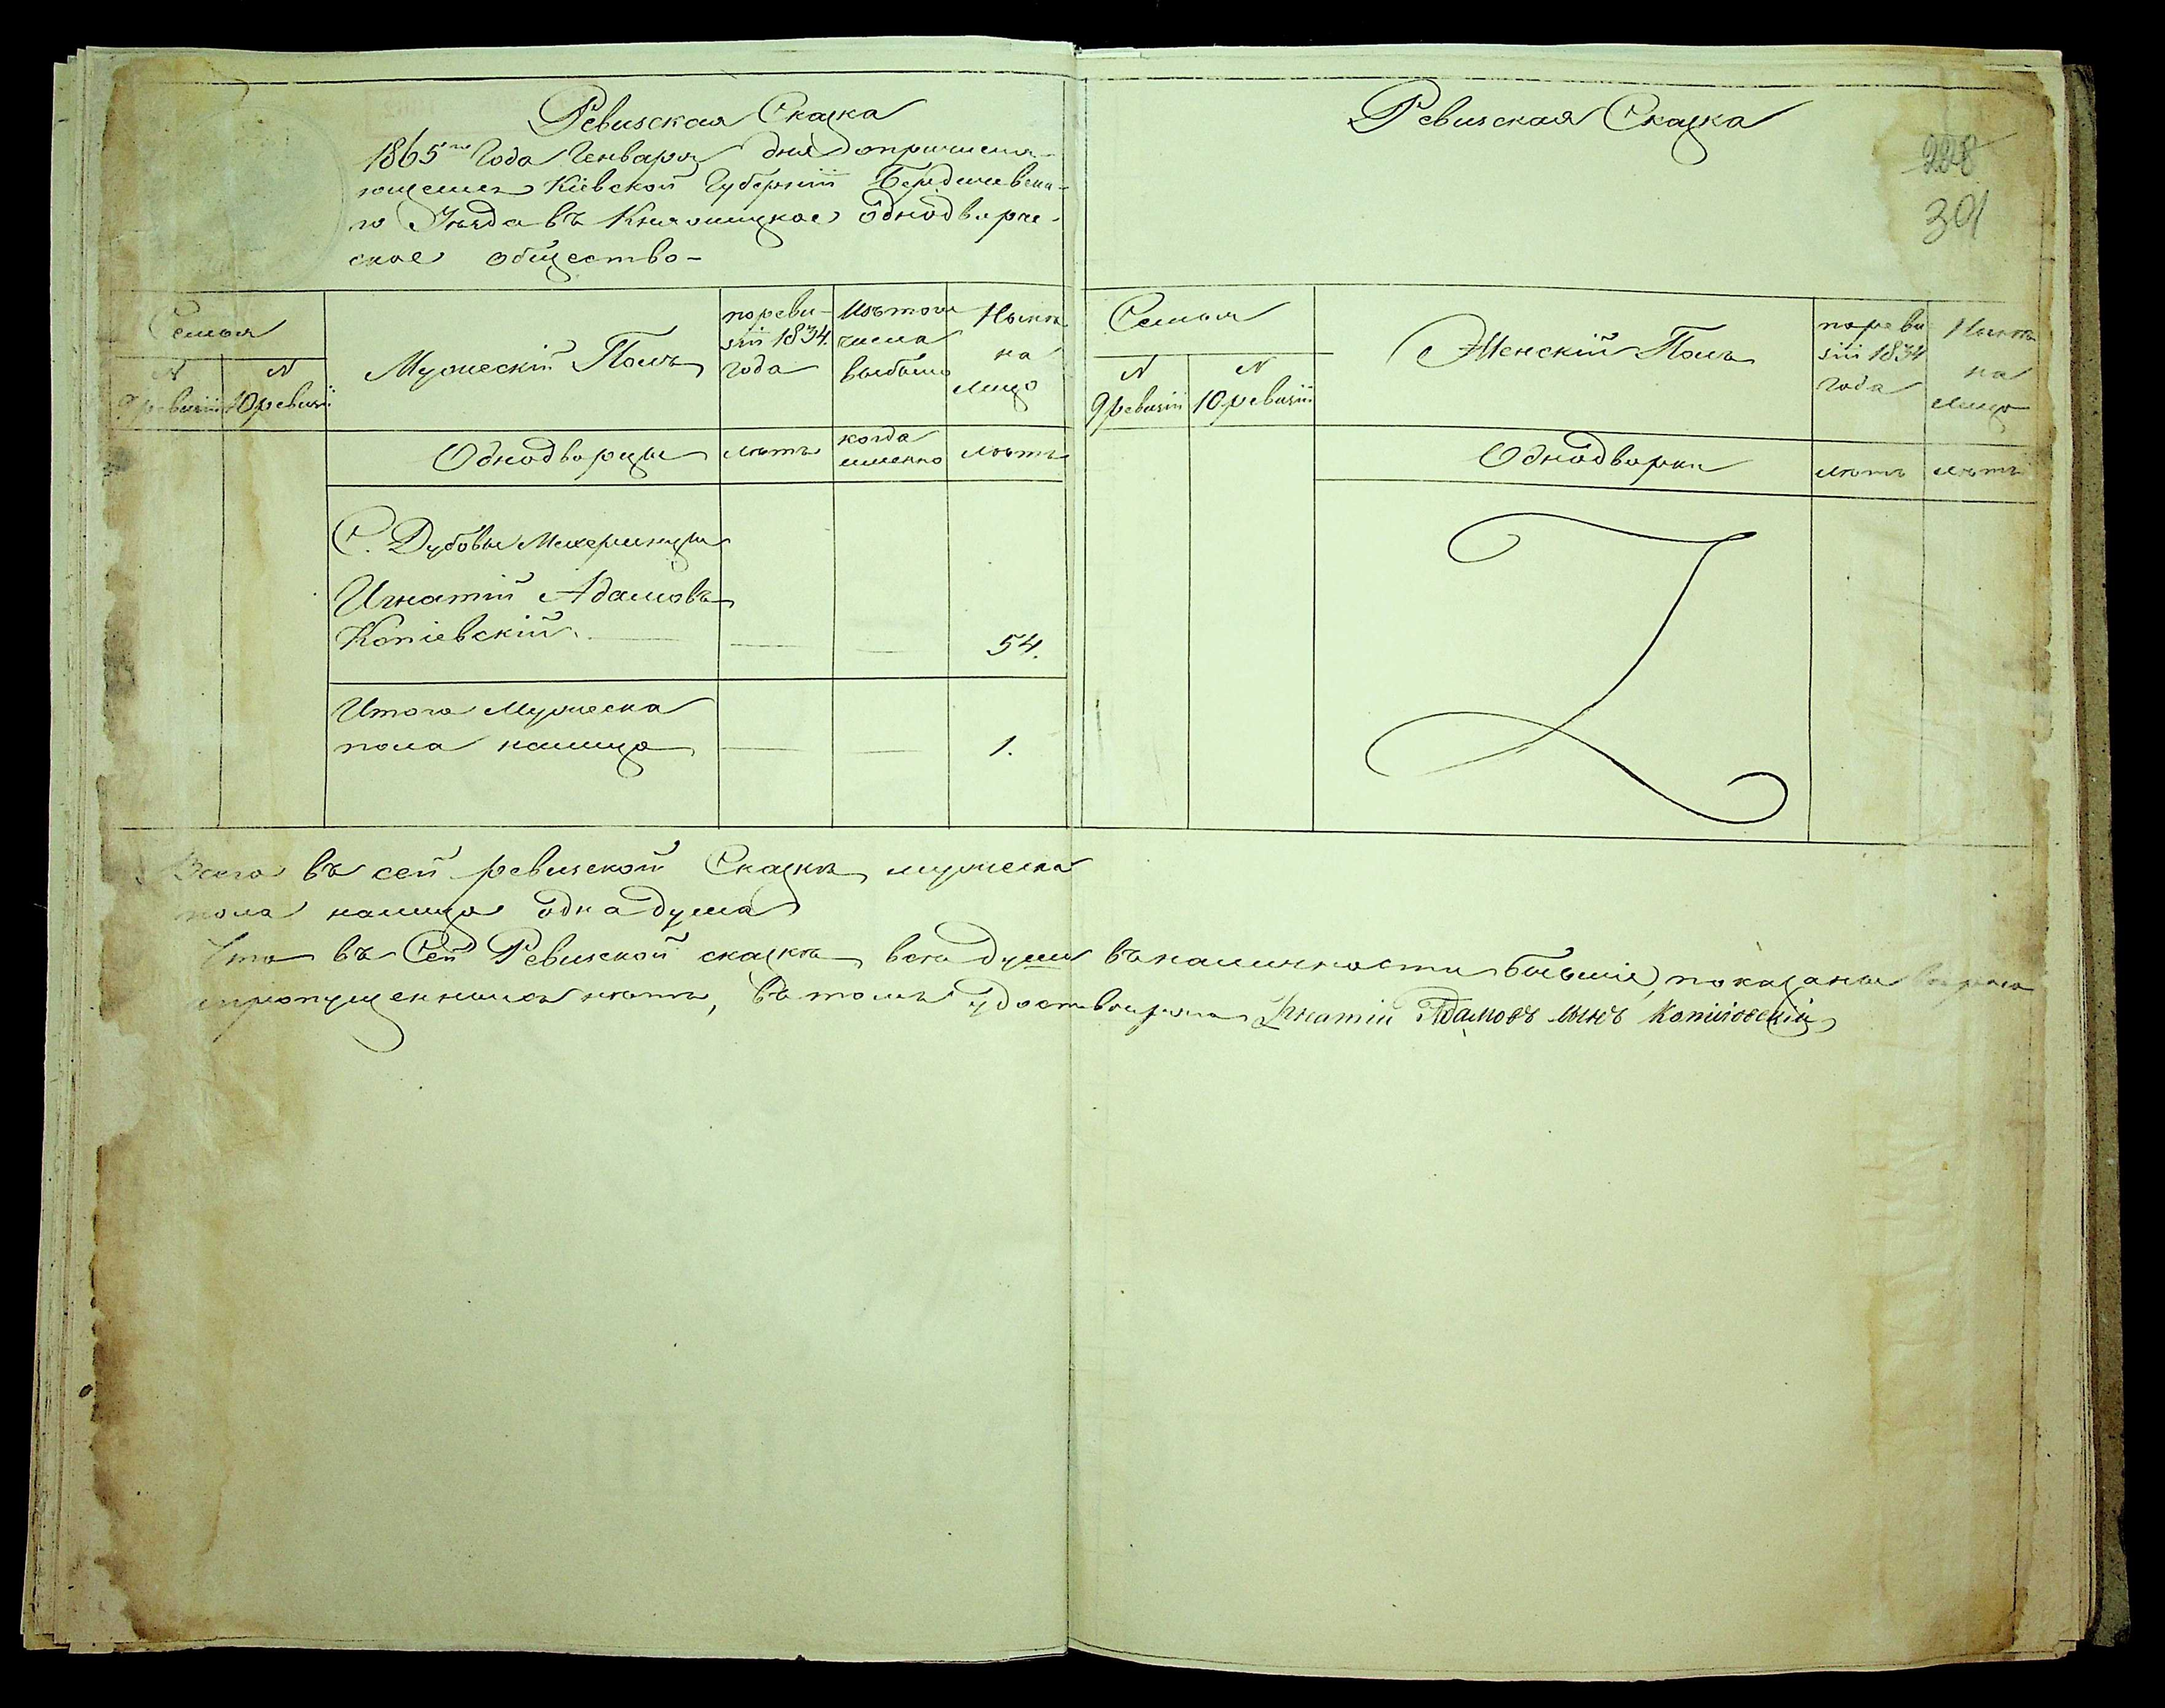 Ревизская Сказка
1865го Года Генваря дня о причисля-
ющемся Кіевской Губерніи Бердичевска-
го Уѣзда въ Княжицкое однодворче-
ское общество
Семья
N
9 ревизіи
N
10 ревизіи
Мужескій Полъ
по реви-
зіи 1834.
года
Изъ того
числа
выбыло
Нынѣ
на
лицо
Однодворцы
лѣтъ
когда
именно
лѣтъ
С. Дубовы Махеринцы
Игнатій Адамовъ
Копіевскій
54.
Итого мужеска
пола налицо
1.
Ревизская Сказка
228
301
Семья
N
9 ревизіи
N
10 ревизіи
Женскій Полъ
по реви
зіи 1834
года
Нынѣ
на
лицо
Однодворки
лѣтъ
лѣтъ
Всего въ сей ревизской Сказкѣ мужеска
пола налицо одна душа
Что въ Сей Ревизской сказкѣ всѣ души въ наличности бывшіе, показаны вѣрно
и пропущенныхъ нѣтъ, въ томъ удостовѣряю Игнатій Адамовъ сынъ Копіювскій